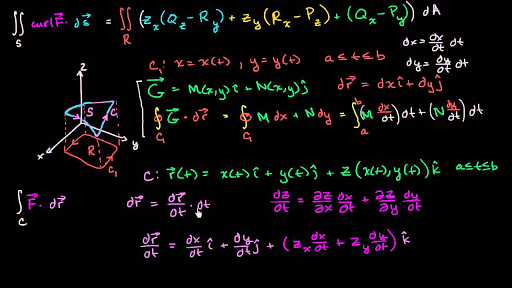 ∬_S curl F⃗ · ds⃗ = ∬_R (z_x(Q_z - R_y) + z_y(R_x - P_z) + (Q_x - P_y)) dA
dx = dx/dt dt
C₁: x = x(t), y = y(t) a ≤ t ≤ b
dy = dy/dt dt
G⃗ = M(x,y)î + N(x,y)ĵ dr⃗ = dx î + dy ĵ
∮_C₁ G⃗ · dr⃗ = ∮_C₁ M dx + N dy = ∫_a^b (M dx/dt) dt + (N dy/dt) dt
z
S
C
R
C₁
x
y
C: r⃗(t) = x(t) î + y(t) ĵ + z(x(t), y(t)) k̂ a ≤ t ≤ b
∫_C F⃗ · dr⃗ dr⃗ = dr⃗/dt · dt dz/dt = ∂z/∂x dx/dt + ∂z/∂y dy/dt
dr⃗/dt = dx/dt î + dy/dt ĵ + (z_x dx/dt + z_y dy/dt) k̂